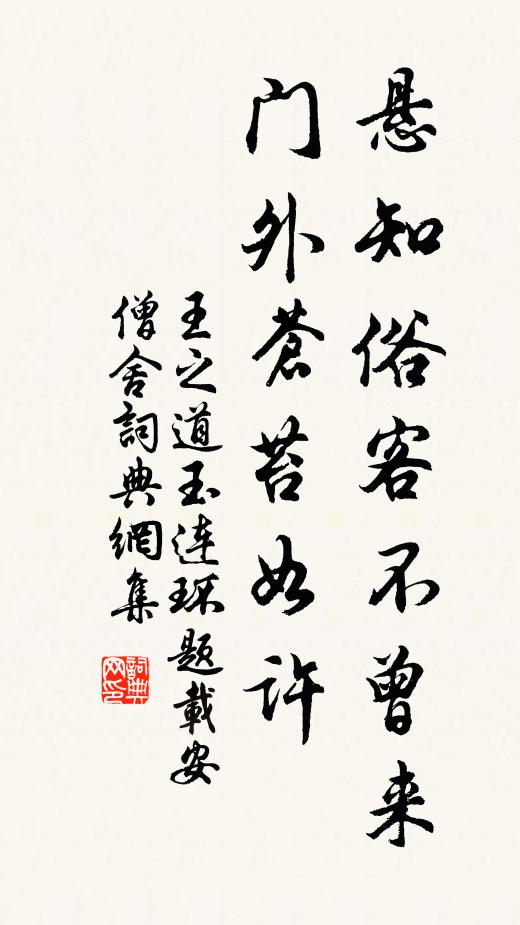 悬知俗客不曾来
门外苍苔如许
王之道玉连环题载安
僧舍词典網集
詞典网印